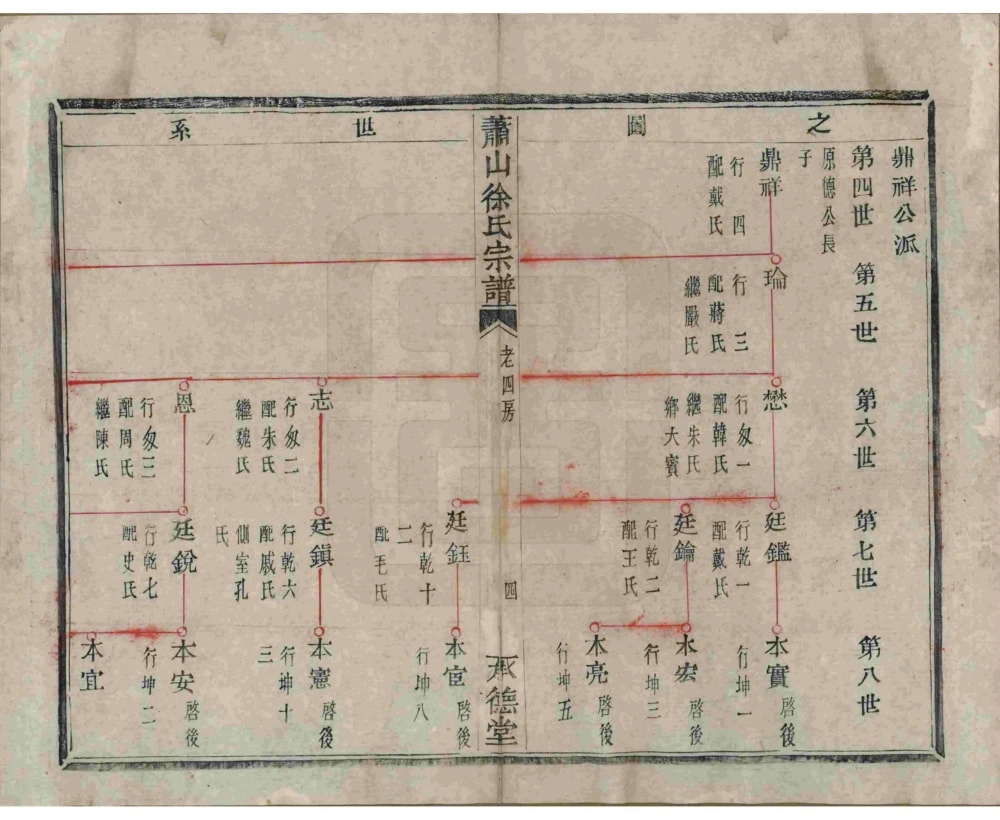 之圖
鼎祥公派
第四世
第五世
第六世
第七世
第八世
原德公長
子
鼎祥
行四
配戴氏
瑜
行三
配蔣氏
繼嚴氏
懋
行匆一
配韓氏
繼朱氏
鄉大賓
廷鑑
行乾一
配戴氏
本實
行坤一
啓後
廷鑰
行乾二
配王氏
本宏
行坤三
啓後
本亮
行坤五
啓後
蕭山徐氏宗譜
老四房
四
承德堂
世系
廷鈺
行乾十
二
配毛氏
本宦
行坤八
啓後
志
行匆二
配朱氏
繼魏氏
廷鎮
行乾六
配戚氏
側室孔
氏
本憲
行坤十
三
啓後
恩
行匆三
配周氏
繼陳氏
廷銳
行乾七
配史氏
本安
行坤二
啓後
本宜